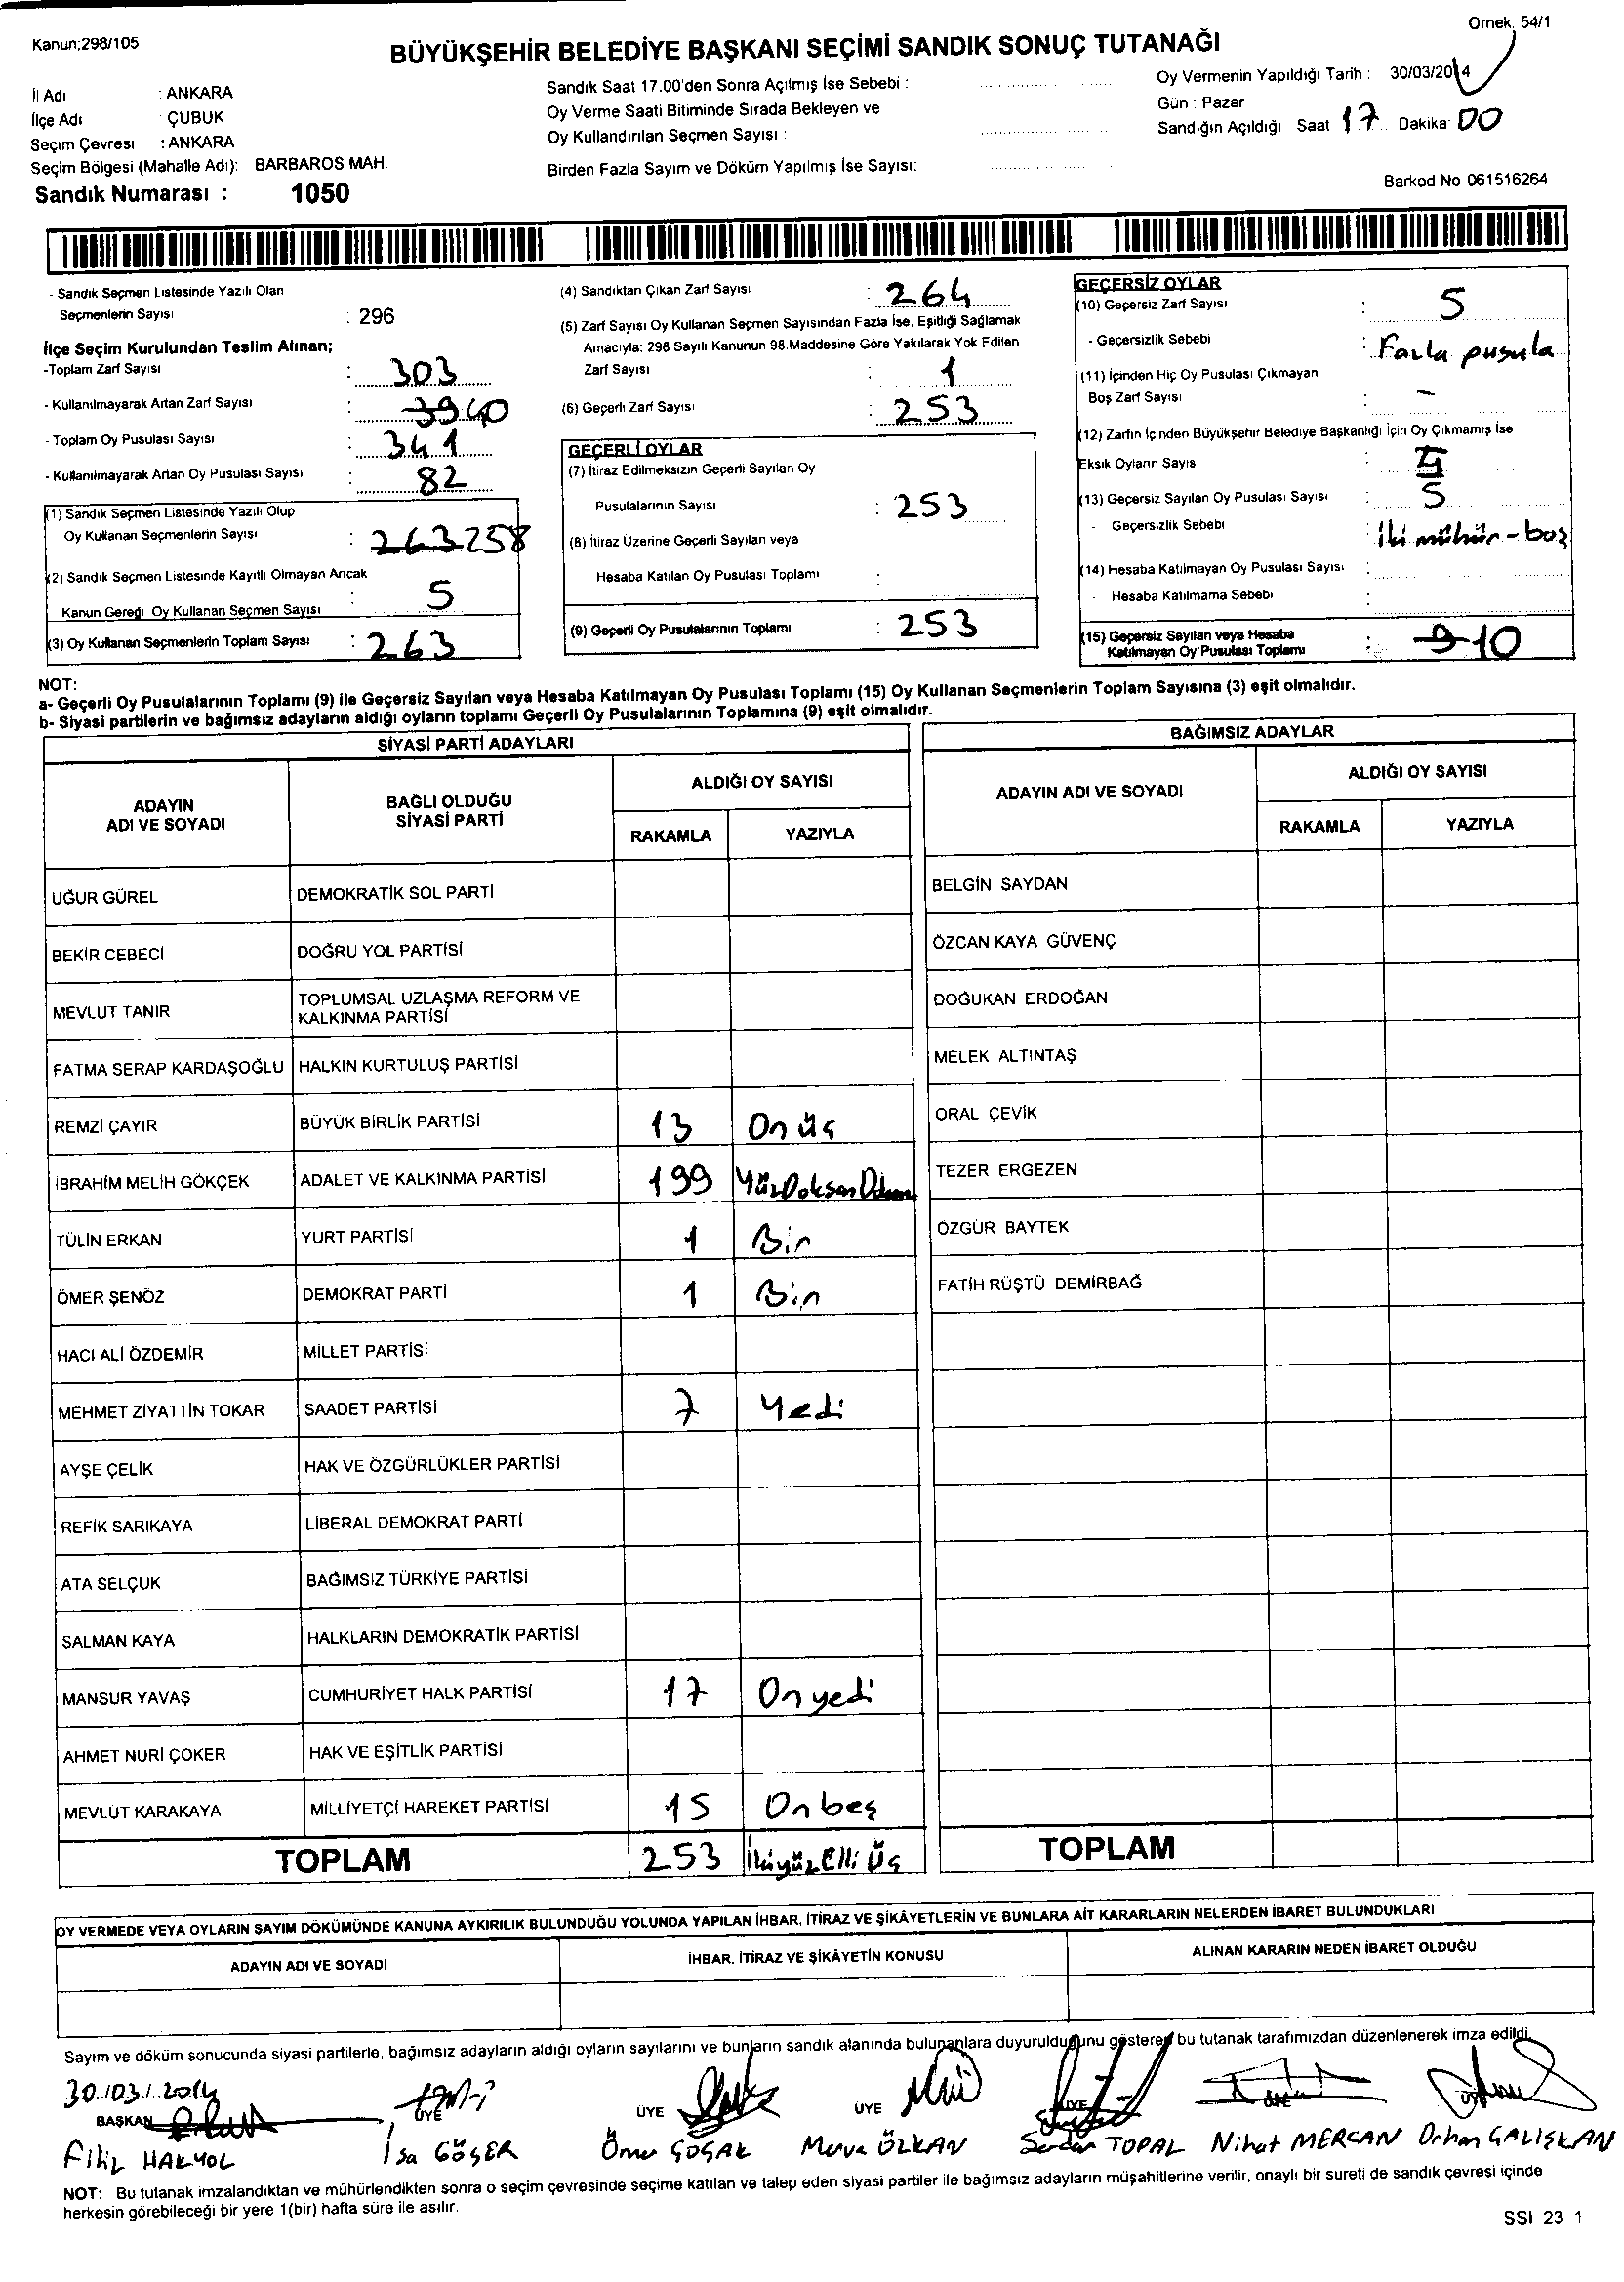 Kanun;298/105
Örnek; 54/1
BÜYÜKŞEHİR BELEDİYE BAŞKANI SEÇİMİ SANDIK SONUÇ TUTANAĞI
İl Adı : ANKARA
İlçe Adı ÇUBUK
Seçim Çevresi : ANKARA
Seçim Bölgesi (Mahalle Adı): BARBAROS MAH.
Sandık Numarası : 1050
Sandık Saat 17.00'den Sonra Açılmış İse Sebebi :
Oy Verme Saati Bitiminde Sırada Bekleyen ve
Oy Kullandırılan Seçmen Sayısı :
Birden Fazla Sayım ve Döküm Yapılmış İse Sayısı:
Oy Vermenin Yapıldığı Tarih : 30/03/2014
Gün : Pazar
Sandığın Açıldığı Saat 17 Dakika 00
Barkod No 061516264
- Sandık Seçmen Listesinde Yazılı Olan
Seçmenlerin Sayısı : 296
İlçe Seçim Kurulundan Teslim Alınan;
-Toplam Zarf Sayısı : 303
- Kullanılmayarak Artan Zarf Sayısı : 39 40
- Toplam Oy Pusulası Sayısı : 341
- Kullanılmayarak Artan Oy Pusulası Sayısı : 82
(1) Sandık Seçmen Listesinde Yazılı Olup
Oy Kullanan Seçmenlerin Sayısı : 263 258
(2) Sandık Seçmen Listesinde Kayıtlı Olmayan Ancak
Kanun Gereği Oy Kullanan Seçmen Sayısı : 5
(3) Oy Kullanan Seçmenlerin Toplam Sayısı : 263
(4) Sandıktan Çıkan Zarf Sayısı : 264
(5) Zarf Sayısı Oy Kullanan Seçmen Sayısından Fazla İse, Eşitliği Sağlamak
Amacıyla: 298 Sayılı Kanunun 98.Maddesine Göre Yakılarak Yok Edilen
Zarf Sayısı : 1
(6) Geçerli Zarf Sayısı : 253
GEÇERLİ OYLAR
(7) İtiraz Edilmeksizin Geçerli Sayılan Oy
Pusulalarının Sayısı : 253
(8) İtiraz Üzerine Geçerli Sayılan veya
Hesaba Katılan Oy Pusulası Toplamı :
(9) Geçerli Oy Pusulalarının Toplamı : 253
GEÇERSİZ OYLAR
(10) Geçersiz Zarf Sayısı : 5
- Geçersizlik Sebebi : Fazla pusula
(11) İçinden Hiç Oy Pusulası Çıkmayan
Boş Zarf Sayısı : -
(12) Zarfın İçinden Büyükşehir Belediye Başkanlığı İçin Oy Çıkmamış İse
Eksik Oyların Sayısı :
(13) Geçersiz Sayılan Oy Pusulası Sayısı : 5
- Geçersizlik Sebebi : İki mühür - boş
(14) Hesaba Katılmayan Oy Pusulası Sayısı :
- Hesaba Katılmama Sebebi :
(15) Geçersiz Sayılan veya Hesaba
Katılmayan Oy Pusulası Toplamı : 9 10
NOT:
a- Geçerli Oy Pusulalarının Toplamı (9) ile Geçersiz Sayılan veya Hesaba Katılmayan Oy Pusulası Toplamı (15) Oy Kullanan Seçmenlerin Toplam Sayısına (3) eşit olmalıdır.
b- Siyasi partilerin ve bağımsız adayların aldığı oyların toplamı Geçerli Oy Pusulalarının Toplamına (9) eşit olmalıdır.
SİYASİ PARTİ ADAYLARI
BAĞIMSIZ ADAYLAR
ADAYIN ADI VE SOYADI
BAĞLI OLDUĞU SİYASİ PARTİ
ALDIĞI OY SAYISI
RAKAMLA YAZIYLA
ADAYIN ADI VE SOYADI
ALDIĞI OY SAYISI
RAKAMLA YAZIYLA
UĞUR GÜREL DEMOKRATİK SOL PARTİ BELGİN SAYDAN
BEKİR CEBECİ DOĞRU YOL PARTİSİ ÖZCAN KAYA GÜVENÇ
MEVLUT TANIR TOPLUMSAL UZLAŞMA REFORM VE KALKINMA PARTİSİ DOĞUKAN ERDOĞAN
FATMA SERAP KARDAŞOĞLU HALKIN KURTULUŞ PARTİSİ MELEK ALTINTAŞ
REMZİ ÇAYIR BÜYÜK BİRLİK PARTİSİ 13 On üç ORAL ÇEVİK
İBRAHİM MELİH GÖKÇEK ADALET VE KALKINMA PARTİSİ 199 YüzDoksan TEZER ERGEZEN
TÜLİN ERKAN YURT PARTİSİ 1 Bir ÖZGÜR BAYTEK
ÖMER ŞENÖZ DEMOKRAT PARTİ 1 Bir FATİH RÜŞTÜ DEMİRBAĞ
HACI ALİ ÖZDEMİR MİLLET PARTİSİ
MEHMET ZİYATTİN TOKAR SAADET PARTİSİ 7 Yedi
AYŞE ÇELİK HAK VE ÖZGÜRLÜKLER PARTİSİ
REFİK SARIKAYA LİBERAL DEMOKRAT PARTİ
ATA SELÇUK BAĞIMSIZ TÜRKİYE PARTİSİ
SALMAN KAYA HALKLARIN DEMOKRATİK PARTİSİ
MANSUR YAVAŞ CUMHURİYET HALK PARTİSİ 17 Onyedi
AHMET NURİ ÇOKER HAK VE EŞİTLİK PARTİSİ
MEVLÜT KARAKAYA MİLLİYETÇİ HAREKET PARTİSİ 15 Onbeş
TOPLAM 253 İkiyüz Elli Üç TOPLAM
OY VERMEDE VEYA OYLARIN SAYIM DÖKÜMÜNDE KANUNA AYKIRILIK BULUNDUĞU YOLUNDA YAPILAN İHBAR, İTİRAZ VE ŞİKÂYETLERİN VE BUNLARA AİT KARARLARIN NELERDEN İBARET BULUNDUKLARI
ADAYIN ADI VE SOYADI İHBAR, İTİRAZ VE ŞİKÂYETİN KONUSU ALINAN KARARIN NEDEN İBARET OLDUĞU
Sayım ve döküm sonucunda siyasi partilerle, bağımsız adayların aldığı oyların sayılarını ve bunların sandık alanında bulunanlara duyurulduğunu gösteren bu tutanak tarafımızdan düzenlenerek imza edildi.
30/03/2014
BAŞKAN ÜYE ÜYE ÜYE ÜYE
Filiz HALYOL İsa GÖÇER Ömer ÇOŞAK Merve ÖZKAN Serdar TOPAL Nihat MERCAN Orhan ÇALIŞKAN
NOT: Bu tutanak imzalandıktan ve mühürlendikten sonra o seçim çevresinde seçime katılan ve talep eden siyasi partiler ile bağımsız adayların müşahitlerine verilir, onaylı bir sureti de sandık çevresi içinde
herkesin görebileceği bir yere 1(bir) hafta süre ile asılır.
SSI 23 1